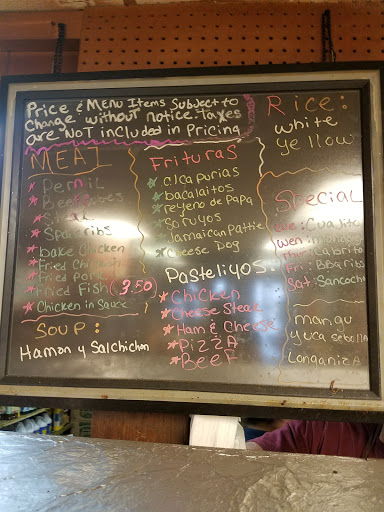 Price & Menu Items Subject to
change without notice. Taxes
are NOT included in Pricing
MEAT
* Pernil
* Beef
* Steak
* Spareribs
* bake Chicken
* Fried Chicken
* Fried Pork
* Fried Fish (9.50)
* Chicken in Sauce
Soup:
Hamon y Salchichon
Frituras
* alcapurias
* bacalaitos
* reyeno de Papa
* Soruyos
* Jamaican Pattie
* Cheese Dog
Pasteliyos:
* Chicken
* Cheese Steak
* Ham & Cheese
* Pizza
* Beef
Rice:
white
yellow
Special
Wen:
Fri: BBQ ribs
Sat: Sancocho
mangu
yuca
Longaniza